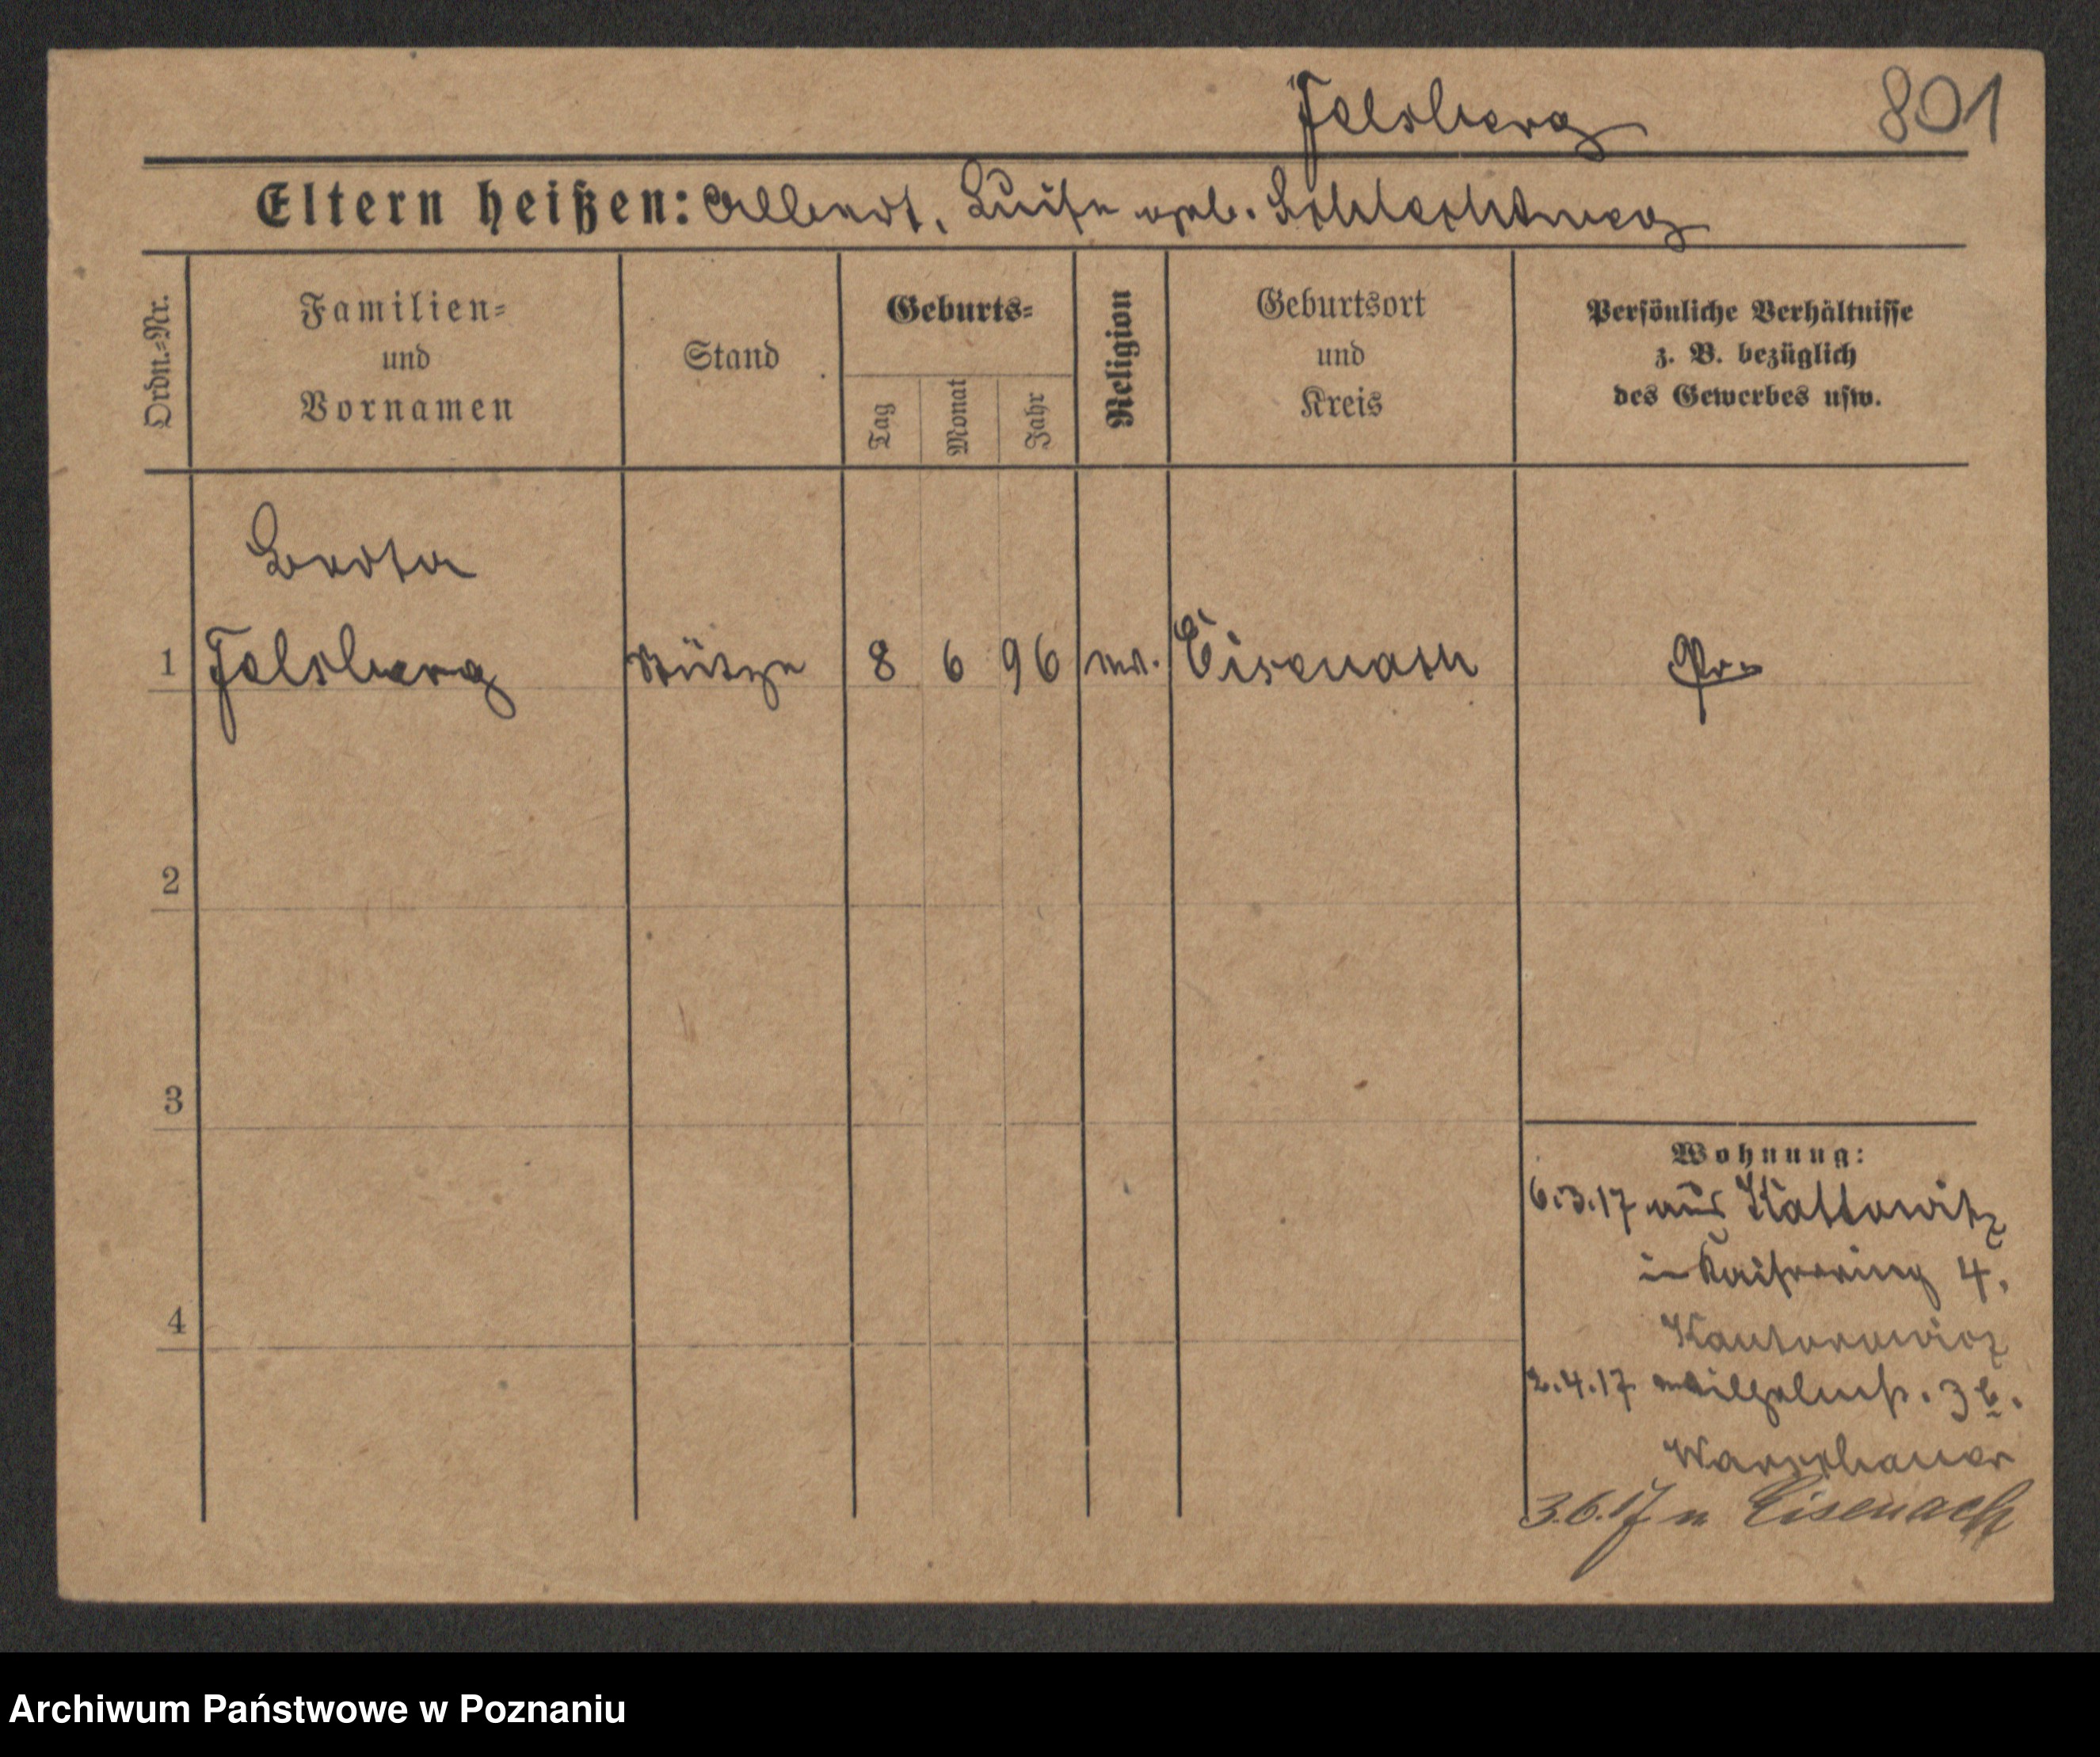 Felsberg 801
Eltern heißen: Albert, Luise geb. Schlechtweg
Ordn.-Nr.
Familien-
und
Vornamen
Stand
Geburts-
Tag
Monat
Jahr
Religion
Geburtsort
und
Kreis
Persönliche Verhältnisse
z. B. bezüglich
des Gewerbes usw.
1 Felsberg Stütze 8 6 96 Eisenach Pr.
2
3
4
Wohnung:
6.3.17 aus Kattowitz
in Kaiserring 4.
Kantorowicz
2.4.17 Wilhelmstr. 3b.
Warschauer
3.6.17 n Eisenach
Archiwum Państwowe w Poznaniu